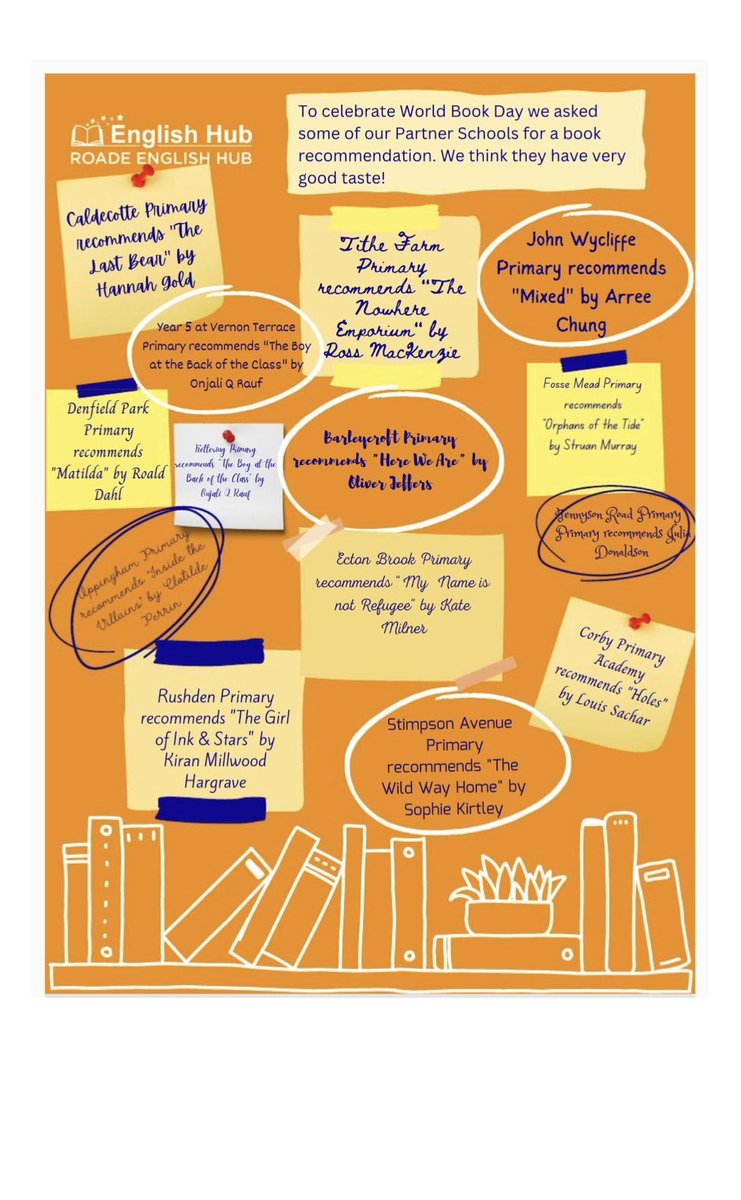 English Hub
ROADE ENGLISH HUB
To celebrate World Book Day we asked
some of our Partner Schools for a book
recommendation. We think they have very
good taste!
Caldecotte Primary
recommends "The
Last Bear" by
Hannah Gold
Tithe Farm
Primary
recommends "The
Nowhere
Emporium" by
Ross MacKenzie
John Wycliffe
Primary recommends
"Mixed" by Arree
Chung
Year 5 at Vernon Terrace
Primary recommends "The Boy
at the Back of the Class" by
Onjali Q Rauf
Denfield Park
Primary
recommends
"Matilda" by Roald
Dahl
Kettering Primary
recommends "The Boy at the
Back of the Class" by
Onjali Q Rauf
Barleycroft Primary
recommends "Here We Are" by
Oliver Jeffers
Fosse Mead Primary
recommends
"Orphans of the Tide"
by Struan Murray
Tennyson Road Primary
Primary recommends Julia
Donaldson
Uppingham Primary
recommends "Inside the
Villains" by Clotilde
Perrin
Ecton Brook Primary
recommends " My Name is
not Refugee" by Kate
Milner
Corby Primary
Academy
recommends "Holes"
by Louis Sachar
Rushden Primary
recommends "The Girl
of Ink & Stars" by
Kiran Millwood
Hargrave
Stimpson Avenue
Primary
recommends "The
Wild Way Home" by
Sophie Kirtley